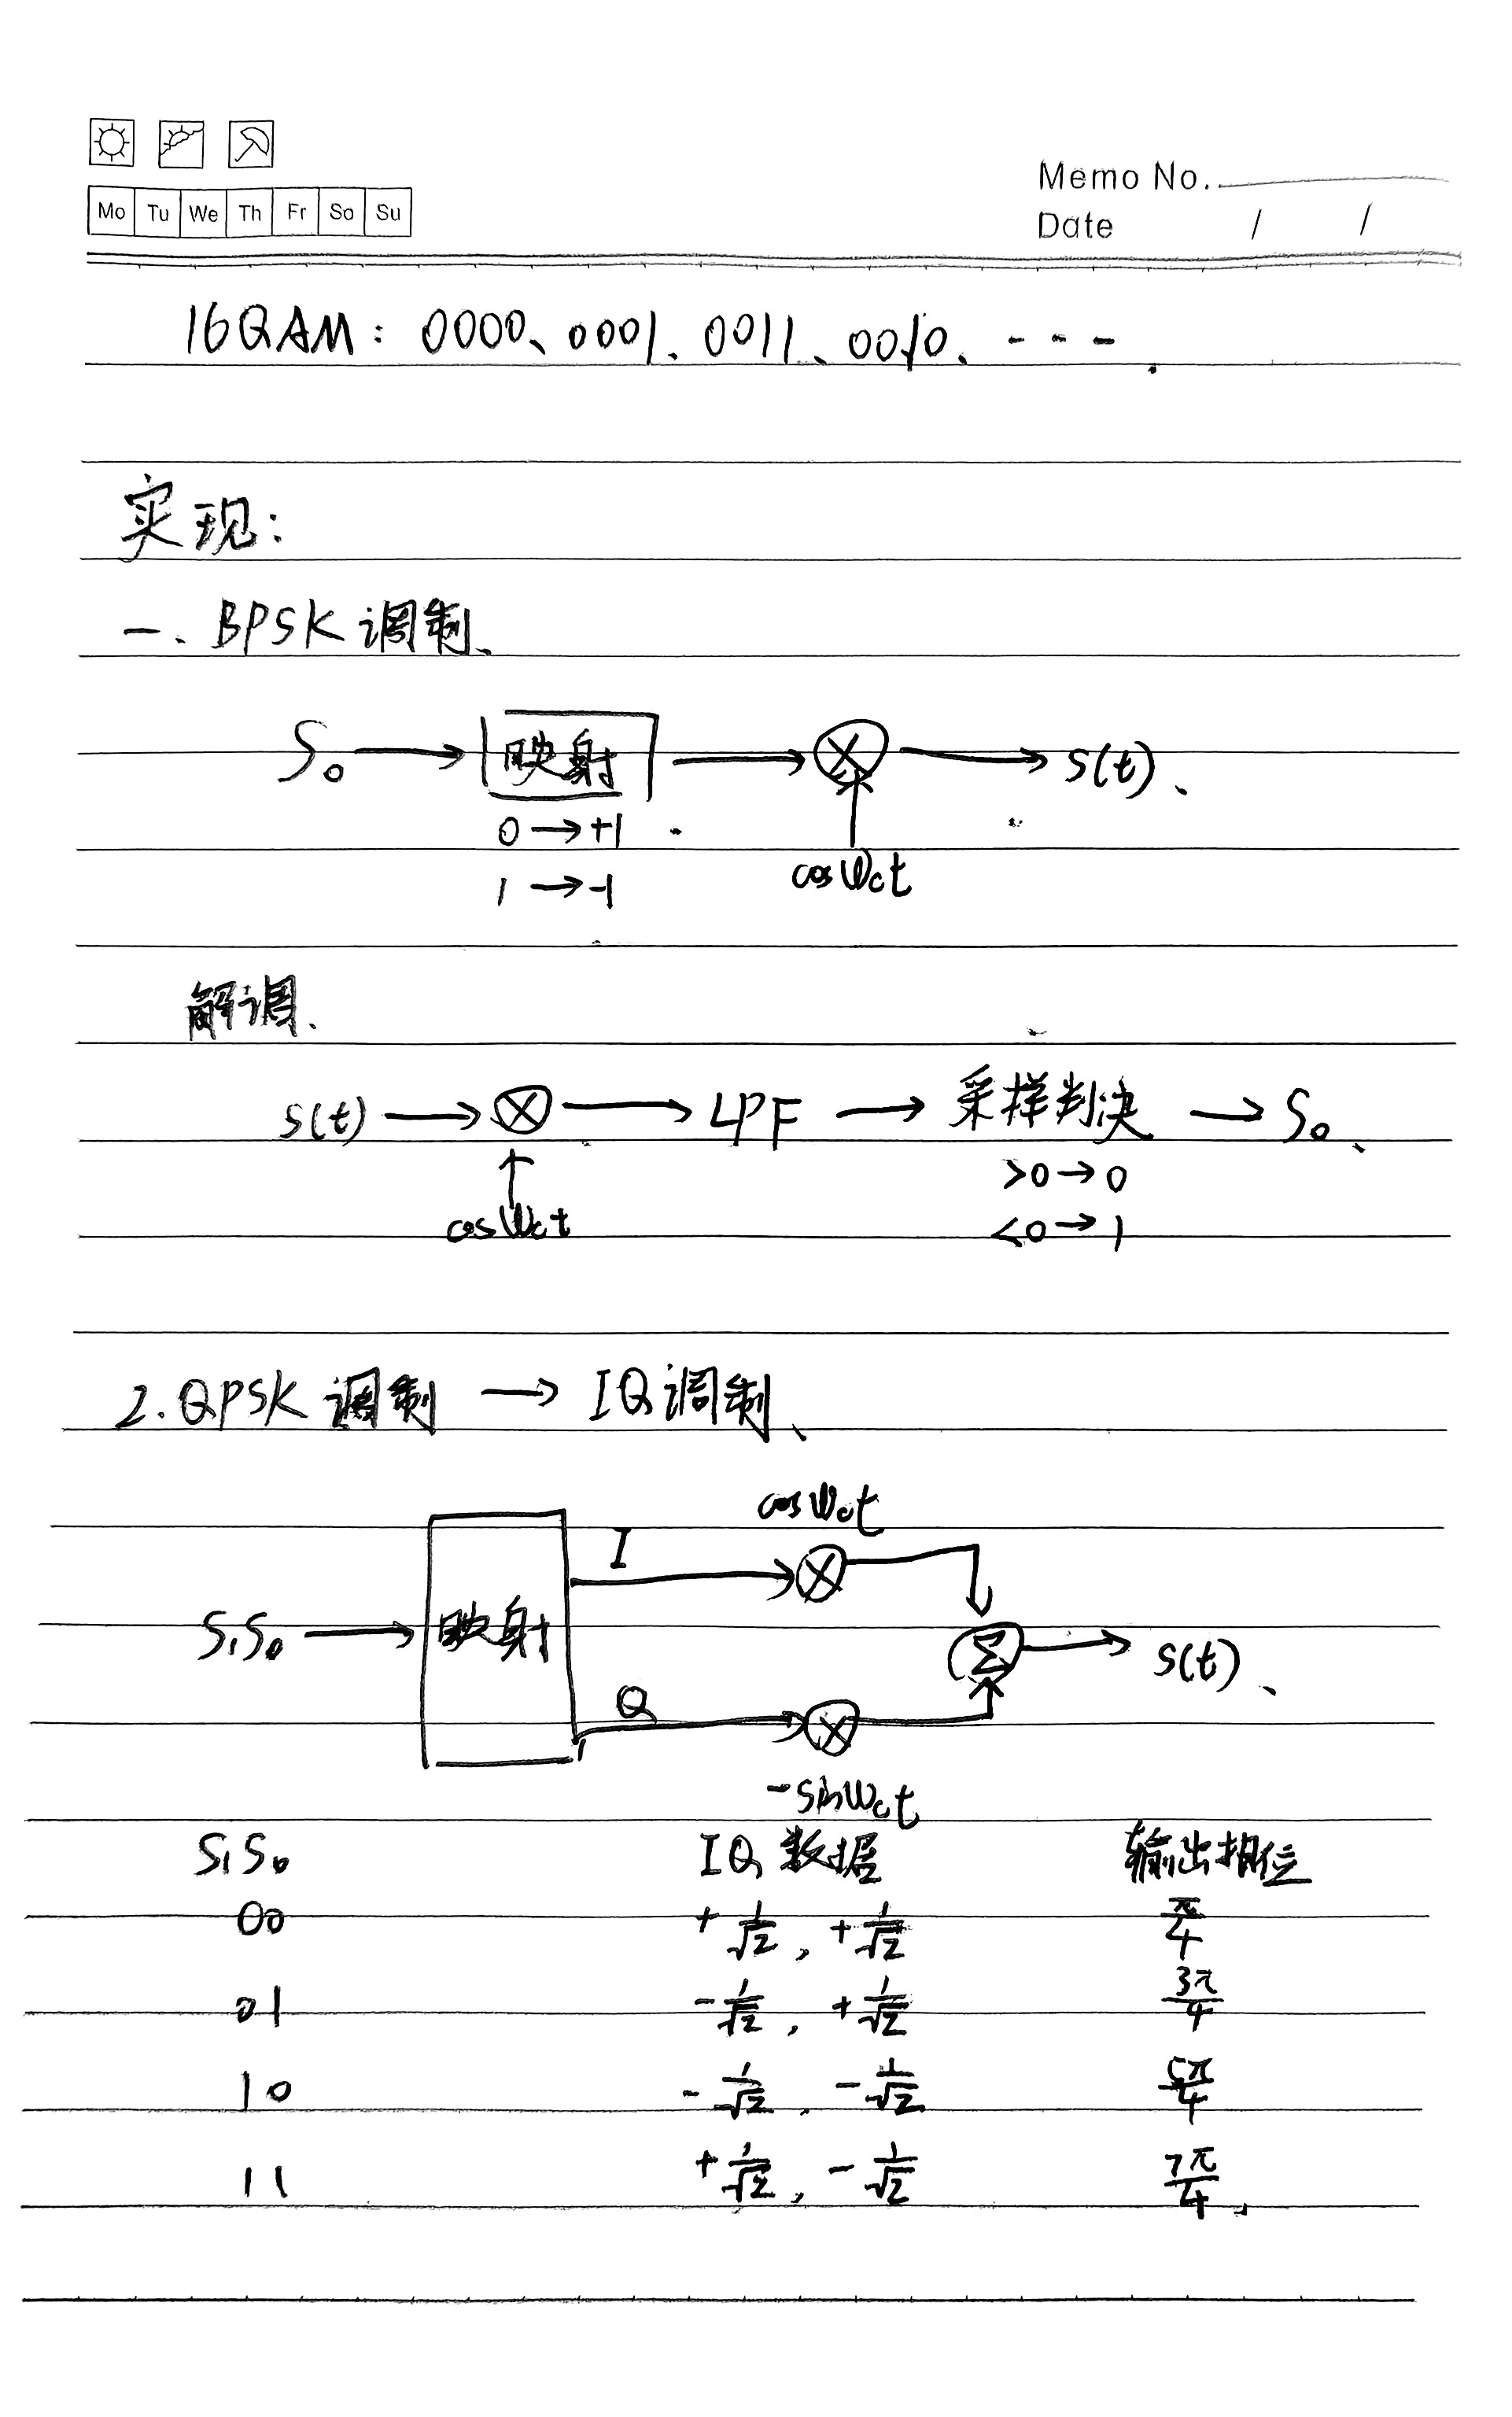 Mo Tu We Th Fr Sa Su
Memo No.
Date / /
16QAM: 0000、0001、0011、0010、---.
实现:
一、BPSK 调制、
S₀ → 映射 → ⊗ → s(t)、
0 → +1
1 → -1
cosωct
解调、
s(t) → ⊗ → LPF → 采样判决 → S₀、
cosωct
>0 → 0
<0 → 1
2. QPSK 调制 → IQ调制、
cosωct
I
⊗
S₁S₀ → 映射
Σ → s(t)、
Q
⊗
-sinωct
S₁S₀ IQ数据 输出相位
00 +1/√2, +1/√2 π/4
01 -1/√2, +1/√2 3π/4
10 -1/√2, -1/√2 5π/4
11 +1/√2, -1/√2 7π/4